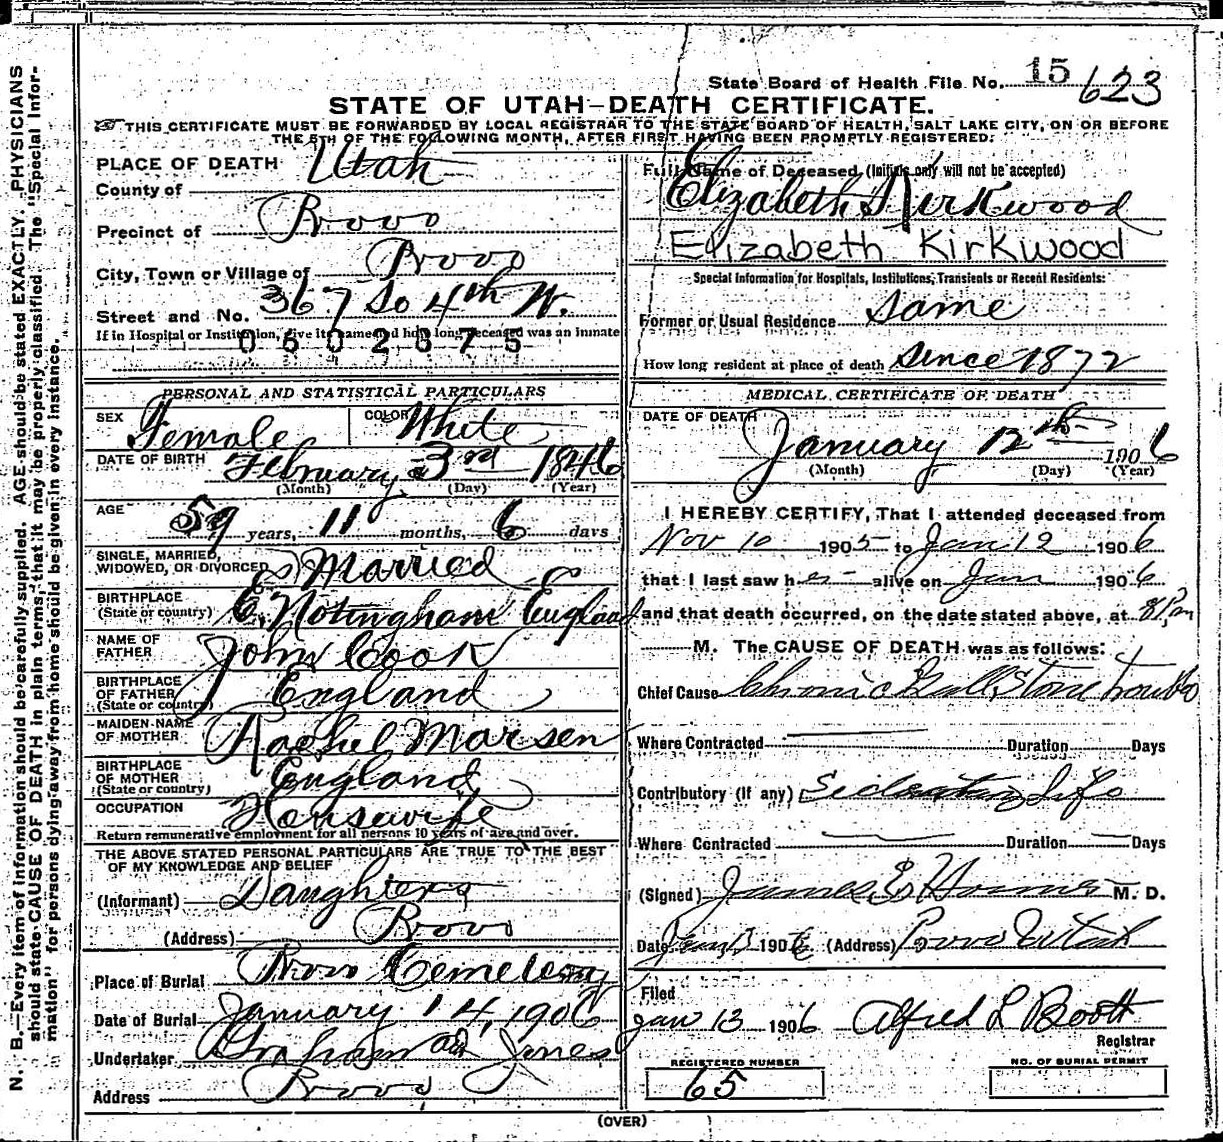 State Board of Health File No. 15 623
STATE OF UTAH—DEATH CERTIFICATE.
THIS CERTIFICATE MUST BE FORWARDED BY LOCAL REGISTRAR TO THE STATE BOARD OF HEALTH, SALT LAKE CITY, ON OR BEFORE
THE 5TH OF THE FOLLOWING MONTH, AFTER FIRST HAVING BEEN PROMPTLY REGISTERED.
PLACE OF DEATH
County of Utah
Precinct of Provo
City, Town or Village of Provo
Street and No. 367 So 4th W.
If in Hospital or Institution, give its name and how long deceased was an inmate
0602675
PERSONAL AND STATISTICAL PARTICULARS
SEX Female COLOR White
DATE OF BIRTH February 3rd 1846
(Month) (Day) (Year)
AGE 59 years, 11 months, 6 days
SINGLE, MARRIED,
WIDOWED, OR DIVORCED Married
BIRTHPLACE
(State or country) Notingham England
NAME OF
FATHER John Cook
BIRTHPLACE
OF FATHER
(State or country) England
MAIDEN NAME
OF MOTHER Rachel Marsen
BIRTHPLACE
OF MOTHER
(State or country) England
OCCUPATION Housewife
Return remunerative employment for all persons 10 years of age and over.
THE ABOVE STATED PERSONAL PARTICULARS ARE TRUE TO THE BEST
OF MY KNOWLEDGE AND BELIEF
(Informant) Daughters
(Address) Provo
Place of Burial Provo Cemetery
Date of Burial January 14, 1906
Undertaker Graham and Jones
Address Provo
Full Name of Deceased (Initials only will not be accepted)
Elizabeth Kirkwood
Elizabeth Kirkwood
Special Information for Hospitals, Institutions, Transients or Recent Residents:
Former or Usual Residence same
How long resident at place of death since 1872
MEDICAL CERTIFICATE OF DEATH
DATE OF DEATH January 12th 1906
(Month) (Day) (Year)
I HEREBY CERTIFY, That I attended deceased from
Nov 10 1905 to Jan 12 1906
that I last saw her alive on Jan 1906
and that death occurred, on the date stated above, at 8 P.m
M. The CAUSE OF DEATH was as follows:
Chief Cause Chronic Gall Stone trouble
Where Contracted Duration Days
Contributory (if any) Sedentary Life
Where Contracted Duration Days
(Signed) James E Homer M. D.
Date Jan 13 1906 (Address) Provo Utah
Filed
Jan 13 1906 Alfred L Booth
Registrar
REGISTERED NUMBER
65
NO. OF BURIAL PERMIT
(OVER)
N. B.—Every item of information should be carefully supplied. AGE should be stated EXACTLY. PHYSICIANS
should state CAUSE OF DEATH in plain terms, that it may be properly classified. The "Special Infor-
mation" for persons dying away from home should be given in every instance.